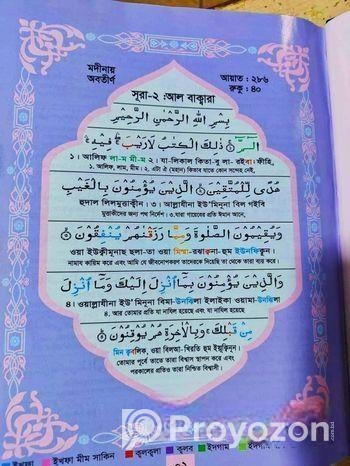 মদীনায়
অবতীর্ণ
আয়াত : ২৮৬
রুকু : ৪০
সূরা-২ :আল বাক্বারা
بِسْمِ اللّٰهِ الرَّحْمٰنِ الرَّحِيْمِ
الٓمّٓ ۝ ذٰلِكَ الْكِتٰبُ لَارَيْبَ فِيْهِ
১। আলিফ লা-ম মী-ম ২। যা-লিকাল কিতা-বু লা- রইবা-ফীহি,
১. আলিফ, লাম, মীম। ২. এটা ঐ (মহান) কিতাব যাতে কোন সন্দেহ নেই,
هُدًى لِّلْمُتَّقِيْنَ ۝ الَّذِيْنَ يُؤْمِنُوْنَ بِالْغَيْبِ
হুদাল লিলমুত্তাক্বীন। ৩। আল্লাযীনা ইউ'মিনূনা বিল গইবি
মুত্তাকীদের জন্য পথ নির্দেশ। ৩.যারা গায়েবের প্রতি ঈমান আনে,
وَيُقِيْمُوْنَ الصَّلٰوةَ وَمِمَّا رَزَقْنٰهُمْ يُنْفِقُوْنَ ۝
ওয়া ইউক্বীমূনাছ ছলা-তা ওয়া মিম্মা-রঝাকুনা-হুম ইউনফিকূন।
নামায কায়িম করে এবং আমি যে জীবনোপকরণ তাদেরকে দিয়েছি তা থেকে তারা ব্যয় করে।
وَالَّذِيْنَ يُؤْمِنُوْنَ بِمَآ اُنْزِلَ اِلَيْكَ وَمَآ اُنْزِلَ
৪। ওয়াল্লাযীনা ইউ'মিনূনা বিমা-উনঝিলা ইলাইকা ওয়ামা-উনঝিলা
৪. আর তোমার প্রতি যা নাযিল হয়েছে এবং যা নাযিল হয়েছে
مِنْ قَبْلِكَ ۚ وَبِالْاٰخِرَةِ هُمْ يُوْقِنُوْنَ ۝
মিন ক্ববলিক, ওয়া বিলআ-খিরতি হুম ইয়ূকিনূন।
তোমার পূর্বে তাতে তারা বিশ্বাস স্থাপন করে এবং
পরকালের প্রতিও তারা নিশ্চিত বিশ্বাসী।
Provozon
ইখফা মীম সাকিন ক্বলক্বলা ক্বলব ইদগাম